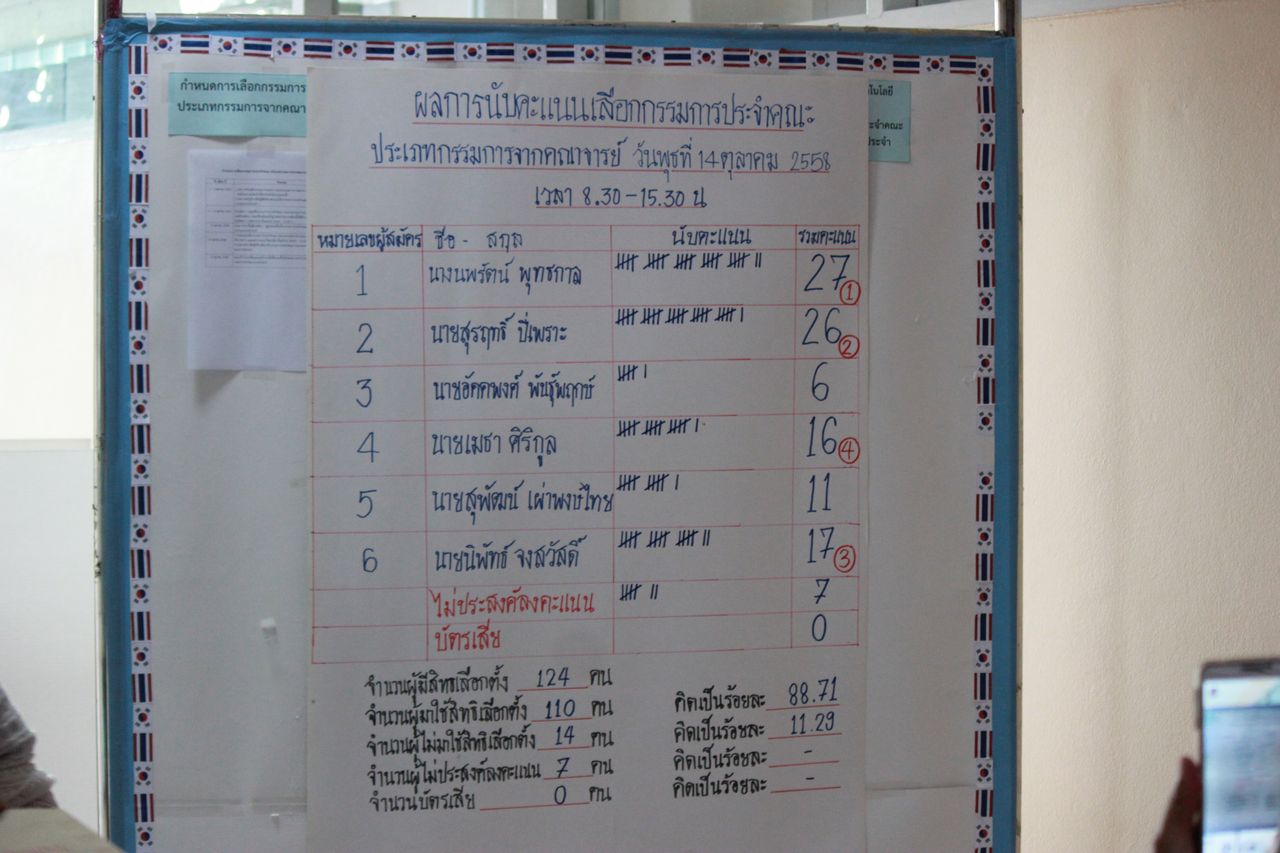 กำหนดการเลือกกรรมการ
ประเภทกรรมการจากคณา
โนโลยี
ะจำคณะ
ประจำ
ผลการนับคะแนนเลือกกรรมการประจำคณะ
ประเภทกรรมการจากคณาจารย์ วันพุธที่ 14 ตุลาคม 2558
เวลา 8.30-15.30 น
หมายเลขผู้สมัคร ชื่อ - สกุล นับคะแนน รวมคะแนน
1 นางนพรัตน์ พุทธกาล 27 ①
2 นายสุรฤทธิ์ ปี่เพราะ 26 ②
3 นายอัคคพงศ์ พันธุ์พฤกษ์ 6
4 นายเมธา ศิริกูล 16 ④
5 นายสุพัฒน์ เผ่าพงษ์ไทย 11
6 นายนิพัทธ์ จงสวัสดิ์ 17 ③
ไม่ประสงค์ลงคะแนน 7
บัตรเสีย 0
จำนวนผู้มีสิทธเลือกตั้ง 124 คน
จำนวนผู้มาใช้สิทธิเลือกตั้ง 110 คน คิดเป็นร้อยละ 88.71
จำนวนผู้ไม่มาใช้สิทธิเลือกตั้ง 14 คน คิดเป็นร้อยละ 11.29
จำนวนผู้ไม่ประสงค์ลงคะแนน 7 คน คิดเป็นร้อยละ -
จำนวนบัตรเสีย 0 คน คิดเป็นร้อยละ -